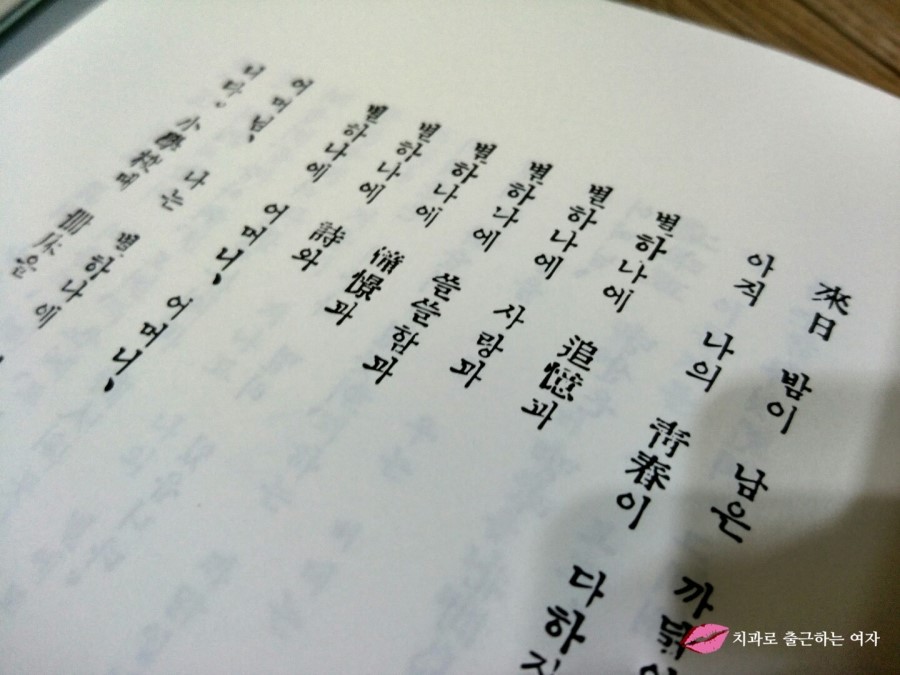 來日 밤이 남은 까닭
아직 나의 靑春이 다하지
별하나에 追憶과
별하나에 사랑과
별하나에 쓸쓸함과
별하나에 憧憬과
별하나에 詩와
별하나에 어머니, 어머니,
어머님, 나는 별하나에
니다。小學校때 冊床을
치과로 출근하는 여자